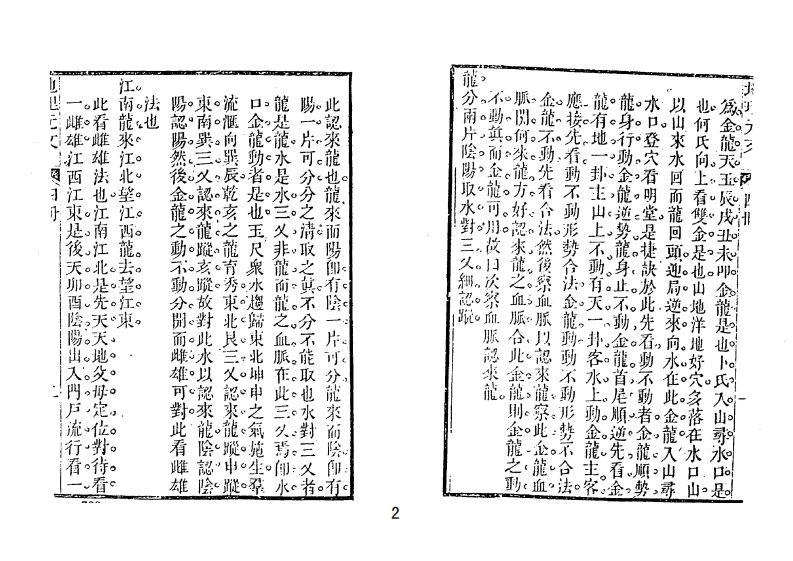 為金龍天玉辰戌丑未即金龍是也。卜氏入山尋水口是
也。何氏向上看雙金是也。山地洋地好穴。多落在水口山。
以山來水回而龍回頭逆局。逆來向水在此。金龍入山尋
水口。登穴看明堂。是捷訣。於此先看動不動者。金龍順勢。
龍身行動。金龍逆勢。龍身止不動。金龍首尾順逆。先看金
龍有地一卦主山上不動。有天一卦客水上動。金龍主客
應接。先看動不動。形勢合法。金龍動。動不動形勢不合法。
金龍不動。先看合法。然後察血脈以認來龍。察此金龍血
脈開何來龍。方好認來龍之血脈。合此金龍。則金龍之動
不動真。而金龍可用。故曰次察血脈認來龍。
龍分兩片陰陽取。水對三叉細認蹤。
此認來龍也。龍來而陽。卽有陰一片可分。龍來而陰。卽有
陽一片可分。分之清。取之眞。不分不能取也。水對三叉者。
龍是龍。水是水。三叉非龍。而龍之血脈在此三叉焉。卽水
口金龍動者是也。玉尺衆水趨歸東北。坤申之氣施生。羣
流滙向巽辰。乾亥之龍育秀。東北艮三叉。認來龍蹤申蹤。
東南巽三叉。認來龍蹤亥蹤。故對此水以認來龍。陰認陰。
陽認陽。然後金龍之動不動分開。而雌雄可對。此看雌雄
法也。
江南龍來江北望。江西龍去望江東。
此看雌雄法也。江南江北。是先天天地父母定位對待看
一雌雄。江西江東。是後天卯酉陰陽出入門戶流行看一
2